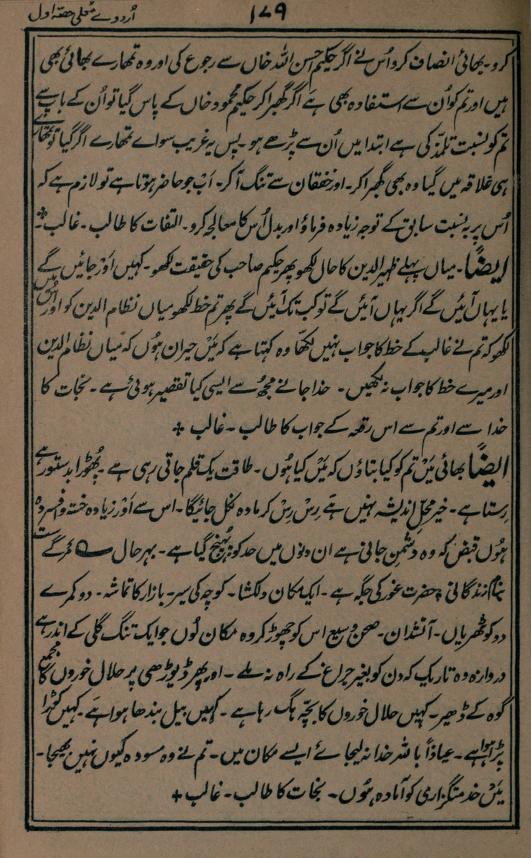 اُردوے معلٰی حصّہ اول
۱۷۹
کرو۔ بھائی انصاف کرو اُس نے اگر حکیم احسن اللہ خاں سے رجوع کی اور وہ تمھارے بھائی بھی
ہیں اور تم کو اُن سے استفادہ بھی ہے اگر گھبرا کر حکیم محمود خاں کے پاس گیا تو اُن کے باپ سے
تم کو نسبت تلمذ کی ہے ابتدا میں اُن سے پڑھے ہو۔ پس یہ غریب سواے تمھارے اگر گیا تو تمھارے
ہی علاقہ میں گیا وہ بھی گھبرا کر۔ اور خفقان سے تنگ آ کر۔ اب جو حاضر ہوتا ہے تو لازم ہے کہ
اُس پر بہ نسبت سابق کے توجہ زیادہ فرماؤ اور بدل اُس کا معالجہ کرو۔ التفات کا طالب۔ غالب ۔ *
ایضاً۔ میاں پہلے ظہیر الدین کا حال لکھو پھر حکیم صاحب کی حقیقت لکھو۔ کہیں اور جائیں گے
یا یہاں آئیں گے اگر یہاں آئیں گے تو کب تک آئیں گے پھر تم خط لکھو میاں نظام الدین کو اور اُنہیں
لکھو کہ تم نے غالب کے خط کا جواب نہیں لکھا وہ کہتا ہے کہ میں حیران ہوں کہ میاں نظام الدین
اور میرے خط کا جواب نہ لکھیں۔ خدا جانے مجھ سے ایسی کیا تقصیر ہوئی ہے۔ نجات کا
خدا سے اور تم سے اس رقعہ کے جواب کا طالب ۔ غالب *
ایضاً بھائی میں تم کو کیا بتاؤں کہ میں کیا ہوں۔ طاقت یک قلم جاتی رہی ہے۔ پھوڑا بدستور ہے
رستا ہے۔ خیر محلِ اندیشہ نہیں ہے رِس رِس کر مادہ نکل جائیگا۔ اس سے اور زیادہ خستہ و فسردہ
ہوں قبض کہ وہ دشمن جانی ہے ان دنوں میں حد کو پہنچ گیا ہے۔ بہرحال مرگے ست
بنام زندگانی * حضرت غور کی جگہ ہے۔ ایک مکان دلکشا۔ کوچہ کی سیر۔ بازار کا تماشہ۔ دو کمرے
دو کوٹھریاں۔ آتشدان۔ صحن وسیع اس کو چھوڑ کر وہ مکان لوں جو ایک تنگ گلی کے اندر ہے
دروازہ وہ تاریک کہ دن کو بغیر چراغ کے راہ نہ ملے۔ اور پھر ڈیوڑھی پر حلال خوروں کا مجمع
گوہ کے ڈھیر۔ کہیں حلال خوروں کا بچّہ ہگ رہا ہے۔ کہیں بیل بندھا ہوا ہے۔ کہیں کوڑا
پڑا ہوا ہے۔ عیاذاً باللہ خدا نہ لیجائے ایسے مکان میں۔ تم نے وہ مسودہ کیوں نہیں بھیجا۔
میں خدمتگزاری کو آمادہ ہوں۔ نجات کا طالب۔ غالب *